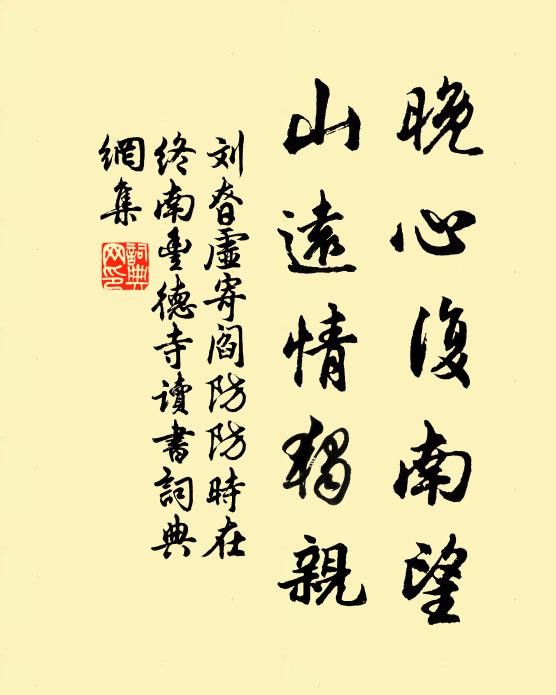 晚心復南望
山遠情獨親
刘眘虛寄阎防防時在
終南豊德寺讀書詞典
網集
詞典
网印